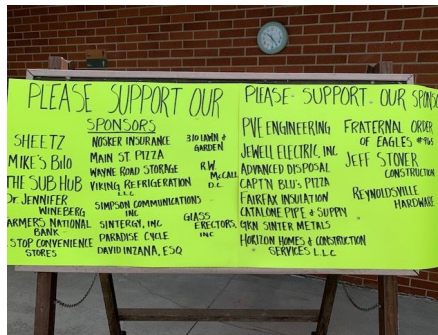 PLEASE SUPPORT OUR
SPONSORS
SHEETZ
MIKE'S Bilo
THE SUB HUB
Dr JENNIFER
WINEBERG
FARMERS NATIONAL
BANK
STOP CONVENIENCE
STORES
NOSKER INSURANCE
MAIN ST. PIZZA
WAYNE ROAD STORAGE
VIKING REFRIGERATION
L.L.C
SIMPSON COMMUNICATIONS
INC
SINTERGY, INC
PARADISE CYCLE
DAVID INZANA, ESQ
310 LAWN &
GARDEN
R.W.
McCALL
D.C.
GLASS
ERECTORS,
INC
PLEASE SUPPORT OUR SPONSO
PVE ENGINEERING
JEWELL ELECTRIC, INC
ADVANCED DISPOSAL
CAPT'N BLU'S PIZZA
FAIREAX INSULATION
CATALONE PIPE & SUPPLY
GKN SINTER METALS
HORIZON HOMES & CONSTRUCTION
SERVICES L.L.C
FRATERNAL ORDER
OF EAGLES #965
JEFF STOVER
CONSTRUCTION
REYNOLDSVILLE
HARDWARE